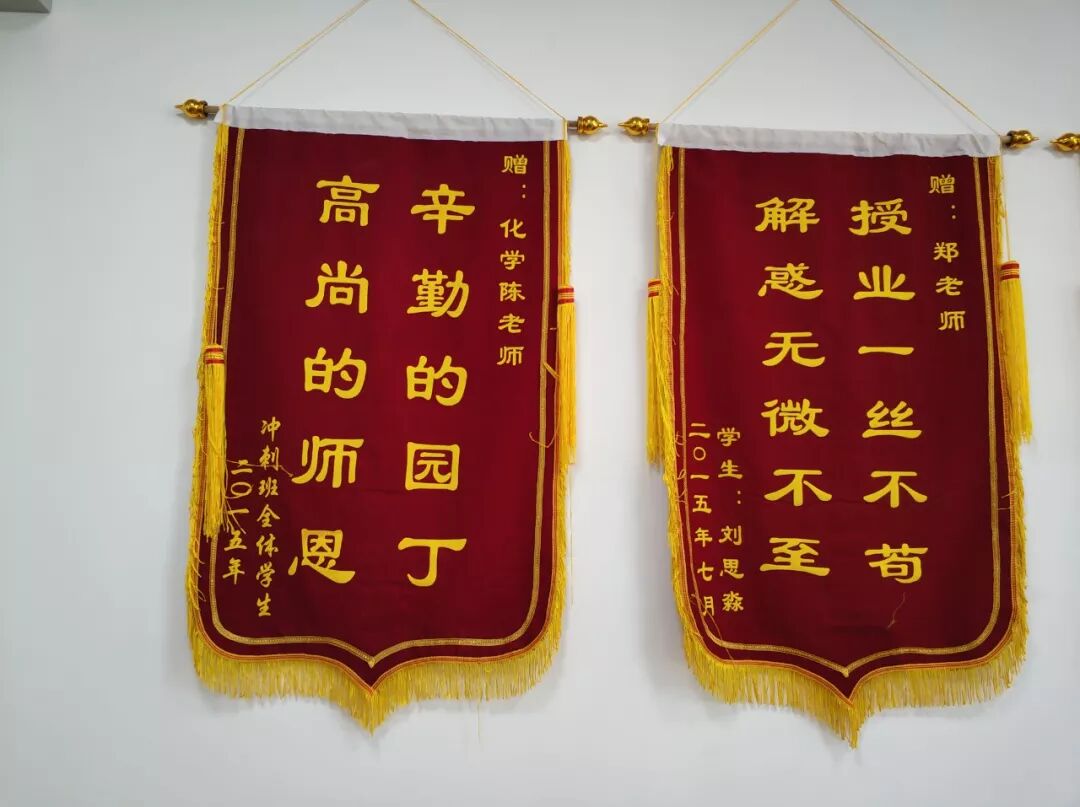 赠：化学陈老师
辛勤的园丁
高尚的师恩
冲刺班全体学生
二〇一五年
赠：郑老师
授业一丝不苟
解惑无微不至
学生：刘思淼
二〇一五年七月